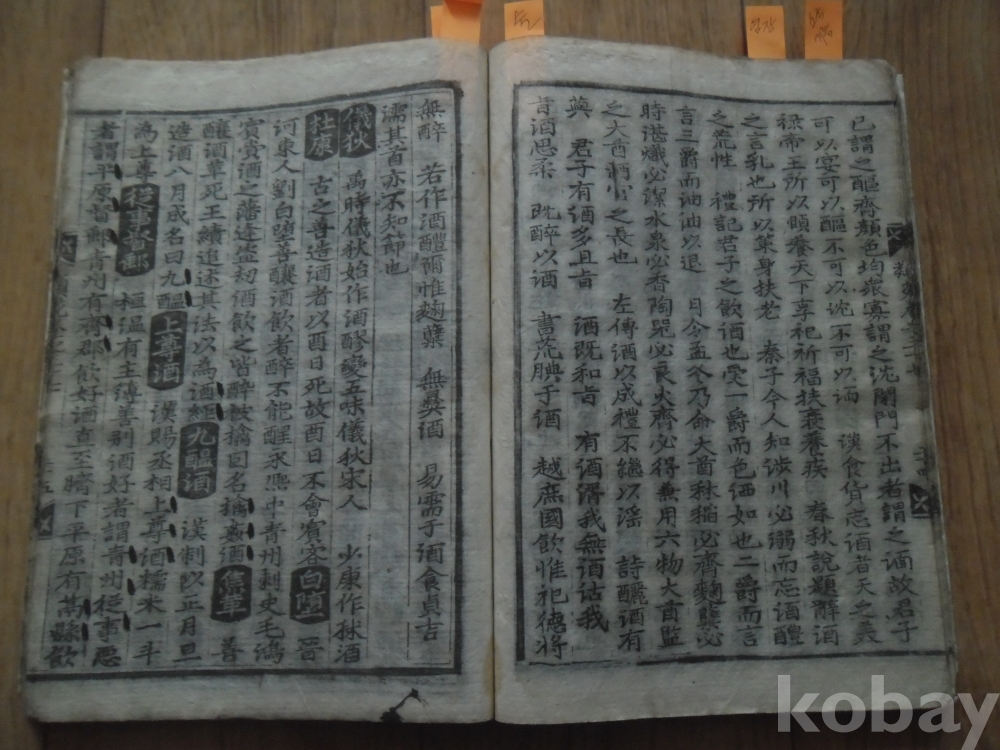 已謂之醞齊顔色均衆寡謂之沈閉門不出者謂之湎故君子
可以宴可以醞不可以沈不可以湎　漢食貨志酒者天之美
祿帝王所以頤養天下享祀祈福扶衰養疾　春秋說題解酒
之言乳也所以柔身扶老　秦子令人知涉川必溺而忘酒醴
之荒性　禮記君子之飮酒也受一爵而色洒如也二爵而言
言三爵而油油以退　月令孟冬乃命大酋秫稻必齊麴櫱必
時湛熾必潔水泉必香陶器必良火齊必得兼用六物大酋監
之大酋酒官之長也　左傳酒以成禮不繼以淫　詩釃酒有
藇　君子有酒多且旨　酒旣和旨　有酒湑我無酒沽我
旨酒思柔　旣醉以酒　書荒腆于酒　越庶國飮惟祀德將
無醉　若作酒醴爾惟麴糵　無彝酒　易需于酒食貞吉
濡其首亦不知節也
儀狄　禹時儀狄始作酒醪變五味儀狄宋人　少康作秫酒
杜康　古之善造酒者以酉日死故酉日不會賓客　白墮　晉
河東人劉白墮善釀酒飮者醉不能醒永熙中青州刺史毛鴻
賓賫酒之藩逢盜刼酒飮之皆醉被擒因名擒姦酒　焦革　善
釀酒革死王績追述其法以爲酒經　九醞酒　漢制以正月旦
造酒八月成名曰九醞　上尊酒　漢賜丞相上尊酒糯米一斗
爲上尊　從事督郵　桓溫有主簿善別酒好者謂青州從事惡
者謂平原督郵青州有齊郡飮好酒直至臍下平原有鬲縣飮
kobay